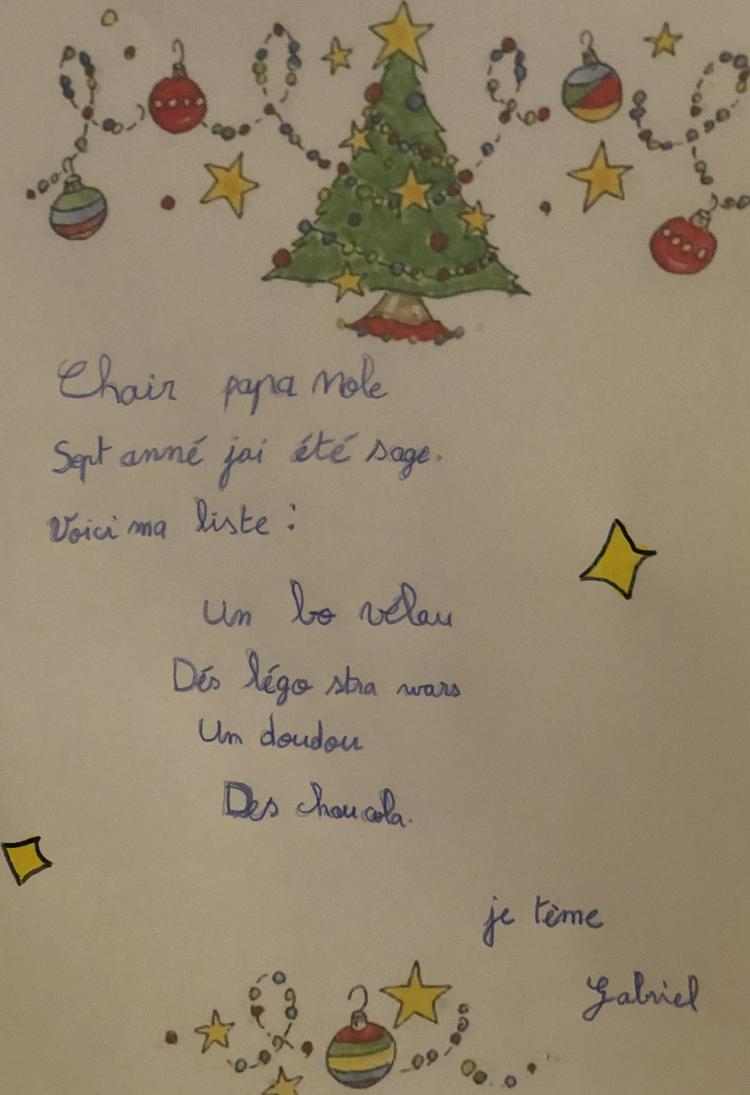 Chair papa nole
Sept anné jai été sage.
Voici ma liste :
Un bo vélau
Dés légo stra wars
Un doudou
Des choucola.
je tème
Gabriel